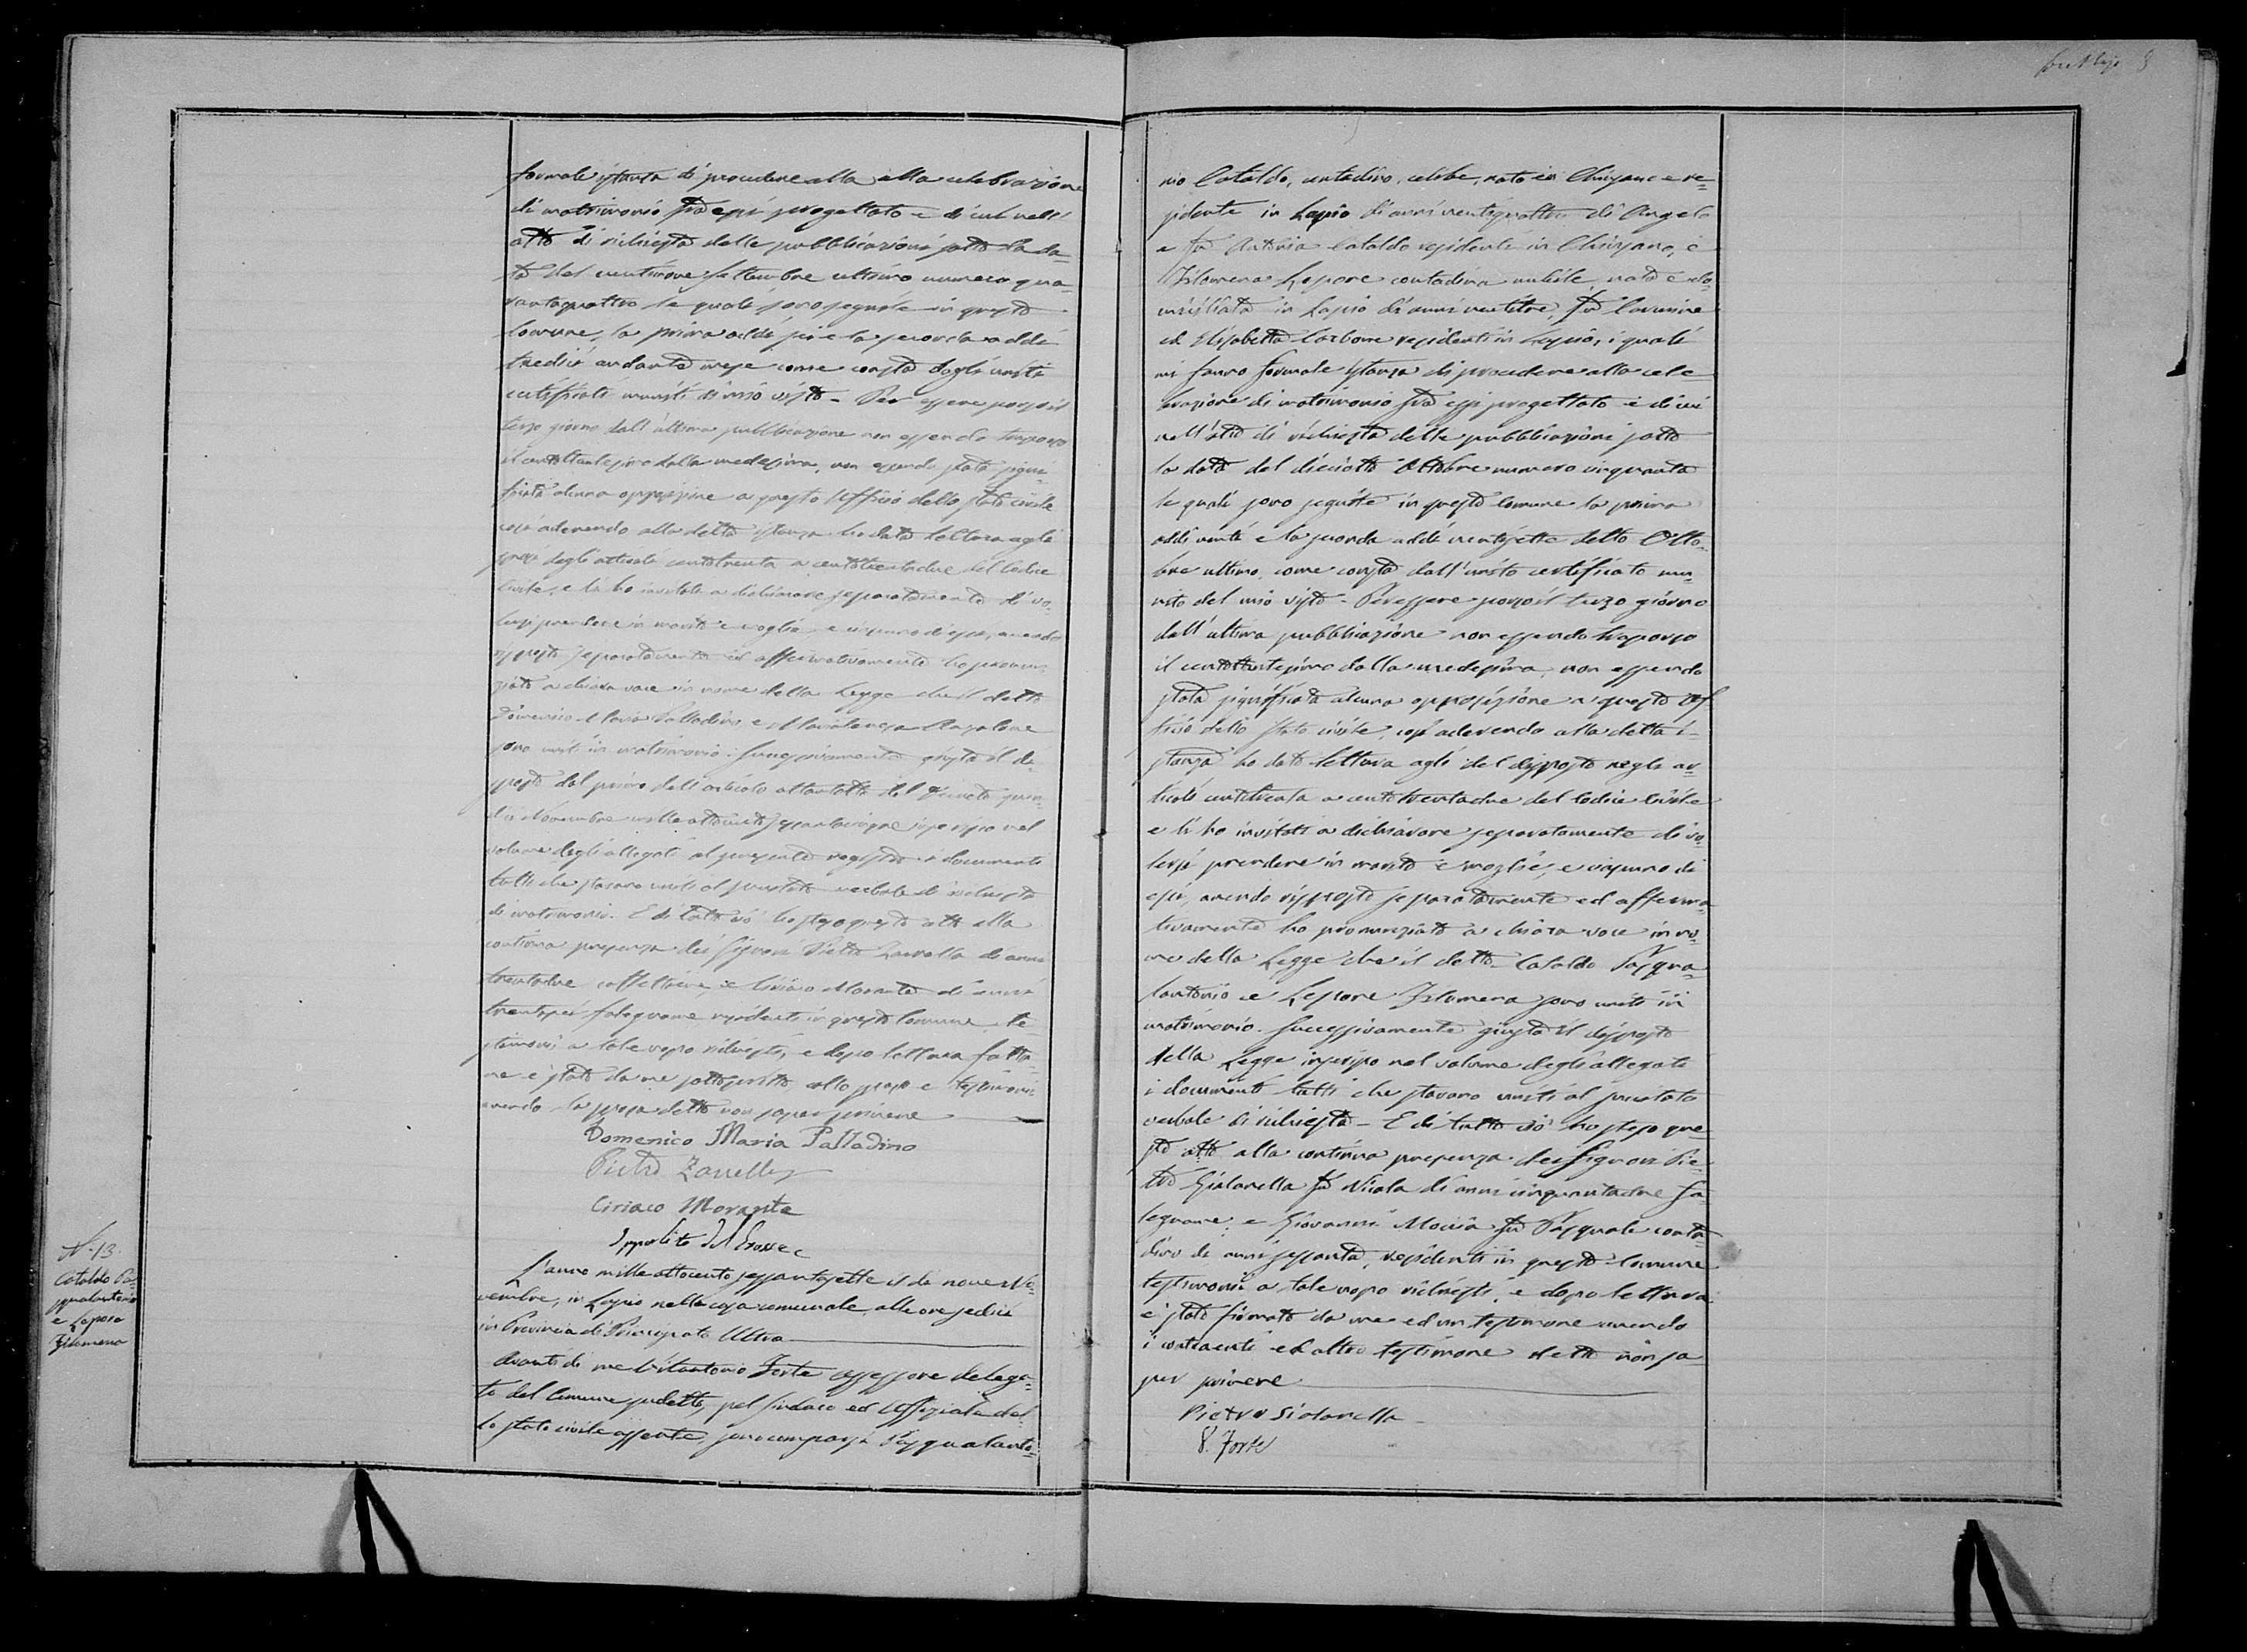 formale istanza di procedere alla alla celebrazione
di matrimonio fra essi progettato e di cui nell'
atto di richiesta delle pubblicazioni sotto la da=
ta del ventinove Settembre ultimo numero qua=
rantaquattro le quali sono seguite in questo
Comune, la prima addì sei e la seconda addì
tredici andante mese come consta dagli uniti
certificati muniti di mio visto - Per essere scorso il
terzo giorno dall'ultima pubblicazione non essendo trascorso
il centottantesimo dalla medesima, non essendo stata signi=
ficata alcuna opposizione a questo Uffizio dello stato civile
così aderendo alla detta istanza ho dato lettura agli
sposi degli articoli centotrenta a centotrentadue del Codice
Civile, e li ho invitati a dichiarare separatamente di vo=
lersi prendere in marito e moglie, e ciascuno di essi, avendo
risposto separatamente ed affermativamente ho pronun=
ziato a chiara voce in nome della Legge che il detto
Domenico Maria Palladino e
sono uniti in matrimonio. Successivamente giusta il di=
sposto dal primo dell'articolo ottantotto del Decreto quin=
dici Novembre mille ottocento sessantacinque inserisco nel
volume degli allegati al presente registro i documenti
tutti che stavano uniti al precitato verbale di richiesta
di matrimonio. E di tutto ciò ho steso questo atto alla
continua presenza dei Signori Pietro Zarrella di anni
trentadue caffettiere, e Ciriaco Morante di anni
trentasei falegname residenti in questo Comune te=
stimoni a tale uopo richiesti, e dopo lettura fatta=
ne è stato da me sottoscritto collo sposo e testimoni
avendo la sposa detto non saper scrivere
Domenico Maria Palladino
Pietro Zarrella
Ciriaco Morante
Ippolito Del
N. 13.
Cataldo Pa=
squalantonio
e Lepore
Filomena
L'anno mille ottocento sessantasette il dì nove No=
vembre, in Lapio nella casa comunale alle ore sedici
in Provincia di Principato Ultra
Avanti di me Vitantonio Forte assessore delega=
to del Comune sudetto, pel Sindaco ed Uffiziale del=
lo stato civile assente, sono comparsi Pasqualanto=
nio Cataldo, contadino, celibe, nato in Chiusano e re=
sidente in Lapio di anni ventiquattro di Angelo
e fu Antonia Cataldo residenti in Chiusano, e
Filomena Lepore contadina nubile, nata e do=
miciliata in Lapio di anni ventitre, fu Carmine
ed Elisabetta Carbone residenti in Lapio, i quali
mi fanno formale istanza di procedere alla cele=
brazione di matrimonio fra essi progettato e di cui
nell'atto di richiesta delle pubblicazioni sotto
la data del diciotto Ottobre numero cinquanta
le quali sono seguite in questo Comune la prima
addì venti e la seconda addì ventisette detto Otto=
bre ultimo, come consta dall'unito certificato mu=
nito del mio visto - Per essere scorso il terzo giorno
dall'ultima pubblicazione non essendo trascorso
il centottantesimo dalla medesima, non essendo
stata significata alcuna opposizione a questo Uf
ficio dello Stato civile, così aderendo alla detta i=
stanza ho dato lettura agli del disposto negli ar=
ticoli centotrenta a centotrentadue del Codice Civile
e li ho invitati a dichiarare separatamente di vo=
lersi prendere in marito e moglie, e ciascuno di
essi, avendo risposto separatamente ed afferma=
tivamente ho pronunziato a chiara voce in no=
me della Legge che il detto Cataldo Pasqua=
lantonio e Lepore Filomena sono uniti in
matrimonio. Successivamente giusta il disposto
della Legge inserisco nel volume degli allegati
i documenti tutti che stavano uniti al precitato
verbale di richiesta - E di tutto ciò ho steso que=
sto atto alla continua presenza dei Signori Pie=
tro Giolarella fu Nicola di anni cinquantadue fa=
legname, e Giovanni Moccia fu Pasquale conta=
dino di anni sessanta, residenti in questo Comune
testimoni a tale uopo richiesti, e dopo lettura
è stato firmato da me ed un testimone avendo
i contraenti ed altro testimone detto non sa
per scrivere
Pietro Siolarella
V. Forte